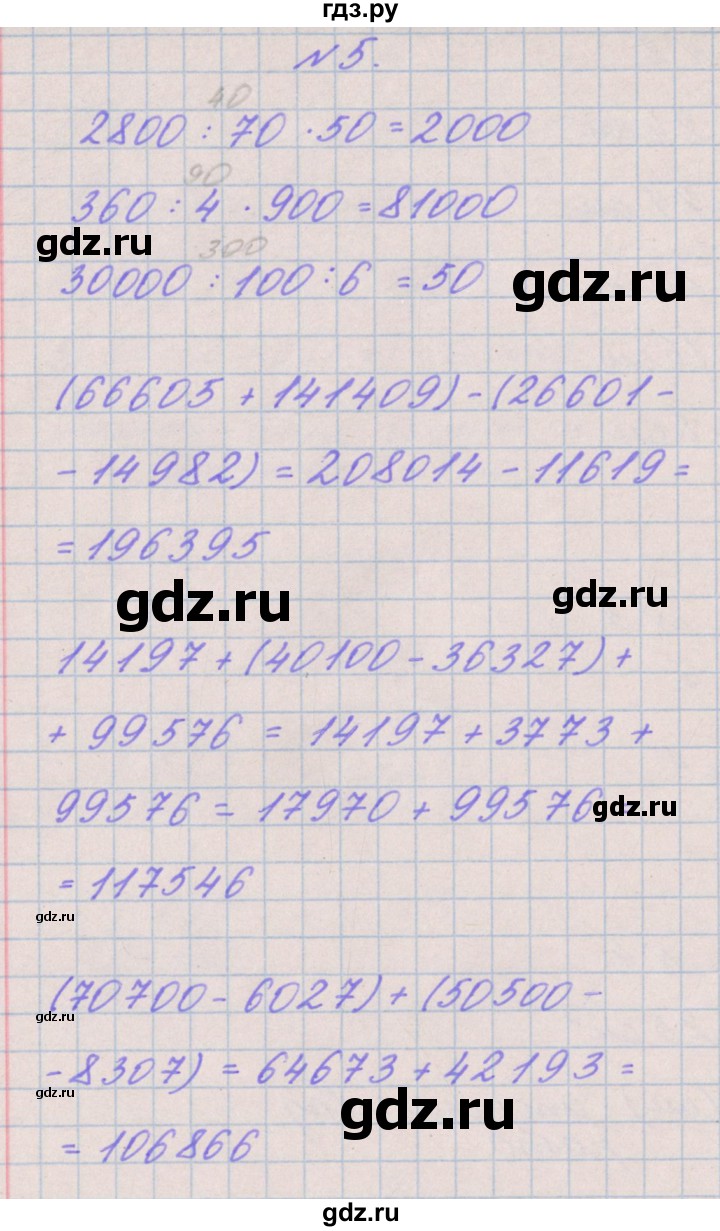 гдз.ру
№5.
40
2800 : 70 · 50 = 2000
90
360 : 4 · 900 = 81000
gdz.ru
300
30000 : 100 : 6 = 50
gdz.ru
(66605 + 141409) - (26601 -
- 14982) = 208014 - 11619 =
= 196395
gdz.ru
gdz.ru
14197 + (40100 - 36327) +
+ 99576 = 14197 + 3773 +
99576 = 17970 + 99576
gdz.ru
= 117546
gdz.ru
(70700 - 6027) + (50500 -
gdz.ru
- 8307) = 64673 + 42193 =
gdz.ru
gdz.ru
= 106866
gdz.ru